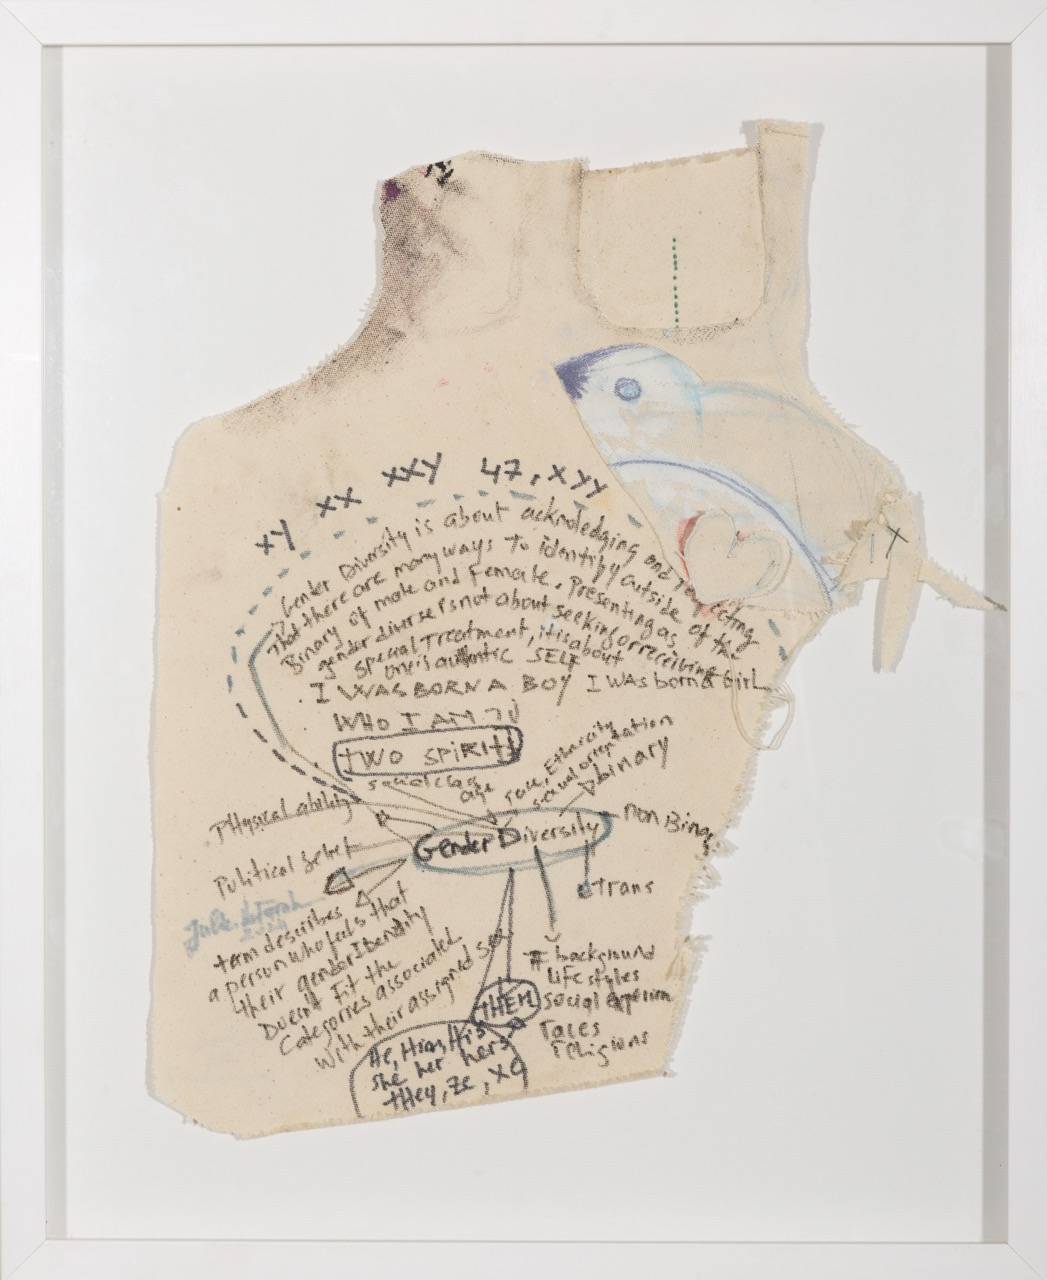 XY XX XXY 47, XYY
Gender Diversity is about acknoledging and respecting
That there are many ways To identify outside of the
Binary of male and Female. Presenting as
gender diverse is not about seeking or receiving
special Treatment, it is about
one's authentic SELF
I WAS BORN A BOY I WAS born a Girl
WHO I AM
TWO SPIRIT
social class
age
race, Ethnicity
sexual orientation
binary
Physical ability
Gender Diversity
non Binary
Political belief
Trans
2024
term describes
a person who feels that
their gender Identity
Doesn't Fit the
Categories associated
with their assigned sex
background
Life styles
THEM
social
races
religions
He, Him, His
she her hers
they, ze, xe